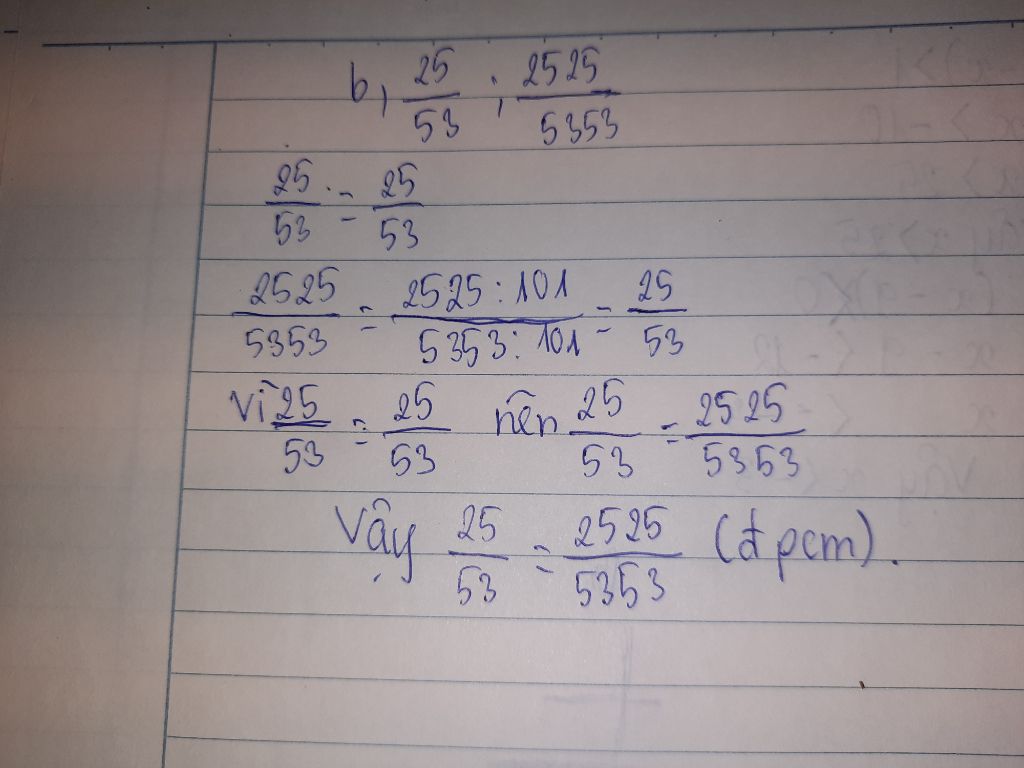 b, 25/53 ; 2525/5353
25/53 = 25/53
2525/5353 = 2525:101/5353:101 = 25/53
Vì 25/53 = 25/53 nên 25/53 = 2525/5353
Vậy 25/53 = 2525/5353 (đpcm).